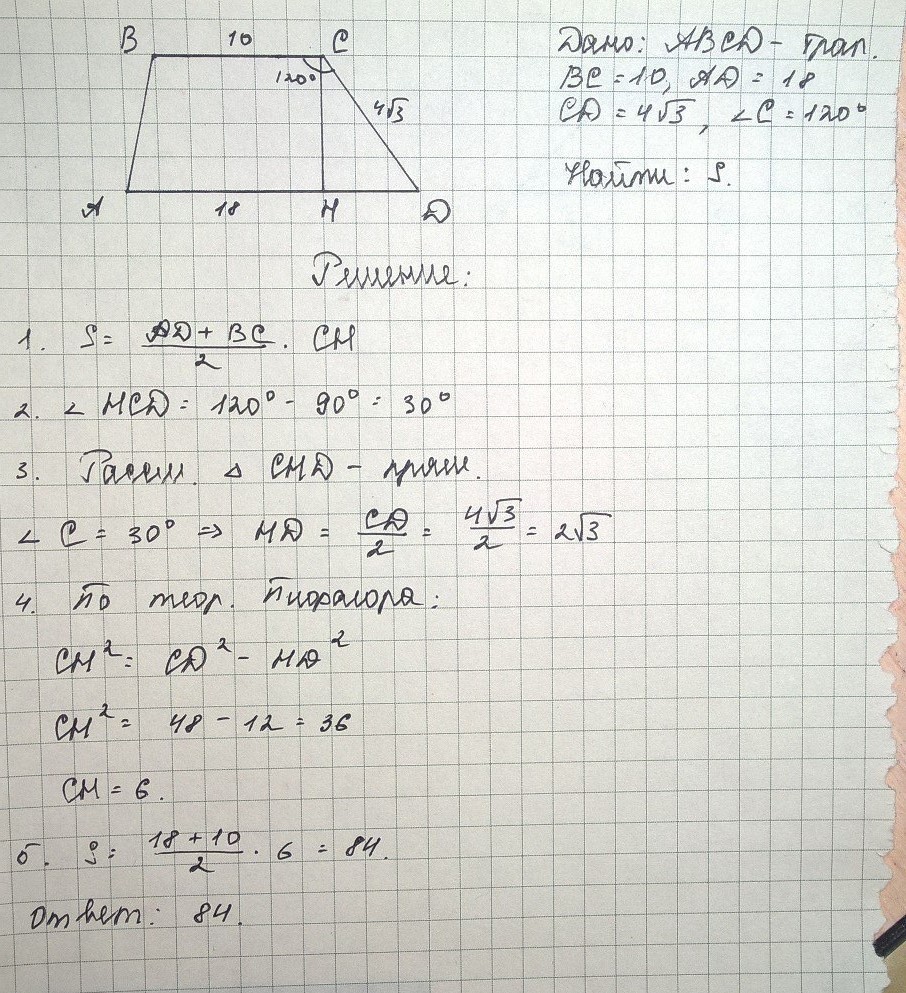 B 10 C
120°
4√3
A 18 H D
Дано: ABCD - трап.
BC = 10, AD = 18
CD = 4√3, ∠C = 120°
Найти: S.
Решение:
1. S = (AD + BC)/2 · CH
2. ∠ HCD = 120° - 90° = 30°
3. Рассм. △ CHD - прям.
∠ C = 30° ⇒ HD = CD/2 = 4√3/2 = 2√3
4. По теор. Пифагора:
CH² = CD² - HD²
CH² = 48 - 12 = 36
CH = 6.
5. S = (18 + 10)/2 · 6 = 84.
Ответ: 84.